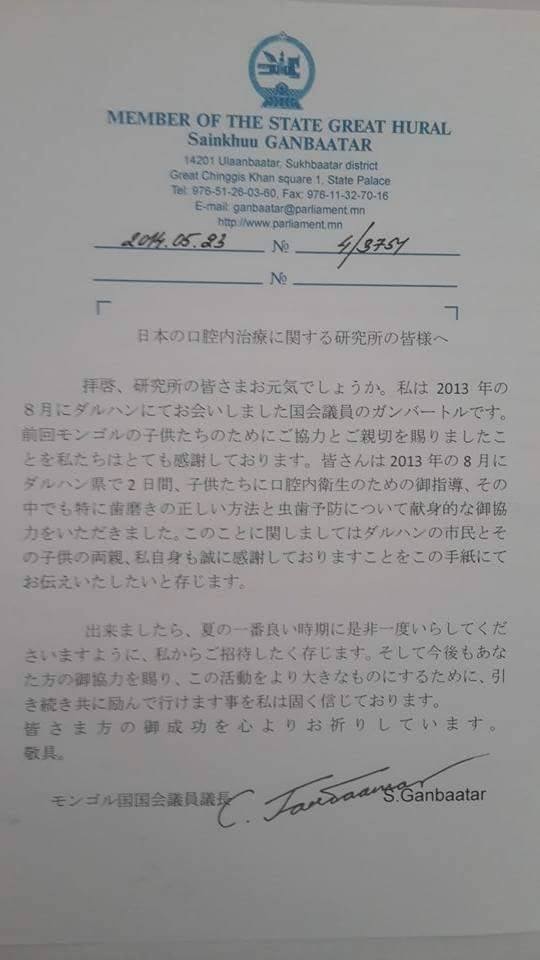 MEMBER OF THE STATE GREAT HURAL
Sainkhuu GANBAATAR
14201 Ulaanbaatar, Sukhbaatar district
Great Chinggis Khan square 1, State Palace
Tel: 976-51-26-03-60, Fax: 976-11-32-70-16
E-mail: ganbaatar@parliament.mn
http://www.parliament.mn
2014.05.23 № 4/3751
№
日本の口腔内治療に関する研究所の皆様へ
拝啓、研究所の皆さまお元気でしょうか。私は 2013 年の
8月にダルハンにてお会いしました国会議員のガンバートルです。
前回モンゴルの子供たちのためにご協力とご親切を賜りましたこ
とを私たちはとても感謝しております。皆さんは 2013 年の 8 月に
ダルハン県で 2 日間、子供たちに口腔内衛生のための御指導、その
中でも特に歯磨きの正しい方法と虫歯予防について献身的な御協
力をいただきました。このことに関しましてはダルハンの市民とそ
の子供の両親、私自身も誠に感謝しておりますことをこの手紙にて
お伝えいたしたいと存じます。
出来ましたら、夏の一番良い時期に是非一度いらしてくだ
さいますように、私からご招待したく存じます。そして今後もあな
た方の御協力を賜り、この活動をより大きなものにするために、引
き続き共に励んで行けます事を私は固く信じております。
皆さま方の御成功を心よりお祈りしています。
敬具。
モンゴル国国会議員議長 S.Ganbaatar